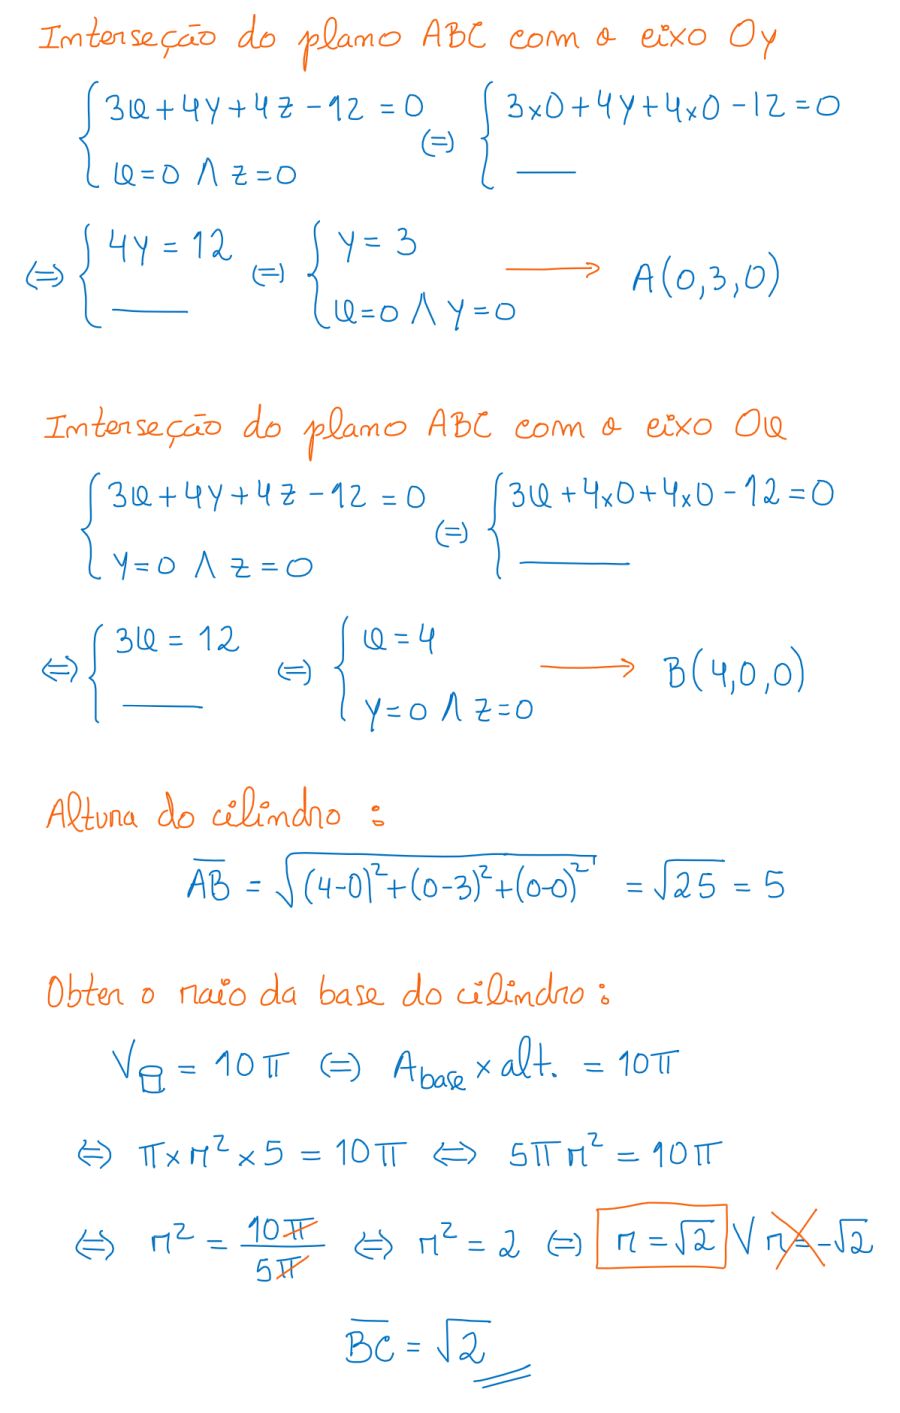 Interseção do plano ABC com o eixo Oy
{ 3x + 4y + 4z - 12 = 0 (=) { 3×0 + 4y + 4×0 - 12 = 0
x = 0 ∧ z = 0 ___
(=) { 4y = 12 (=) { y = 3 → A(0,3,0)
___ x = 0 ∧ y = 0
Interseção do plano ABC com o eixo Ox
{ 3x + 4y + 4z - 12 = 0 (=) { 3x + 4×0 + 4×0 - 12 = 0
y = 0 ∧ z = 0 ___
(=) { 3x = 12 (=) { x = 4 → B(4,0,0)
___ y = 0 ∧ z = 0
Altura do cilindro :
A̅B̅ = √((4-0)² + (0-3)² + (0-0)²) = √25 = 5
Obter o raio da base do cilindro :
V = 10π (=) A base × alt. = 10π
(=) π × r² × 5 = 10π (=) 5πr² = 10π
(=) r² = 10π/5π (=) r² = 2 (=) r = √2 ∨ r = -√2
B̅C̅ = √2